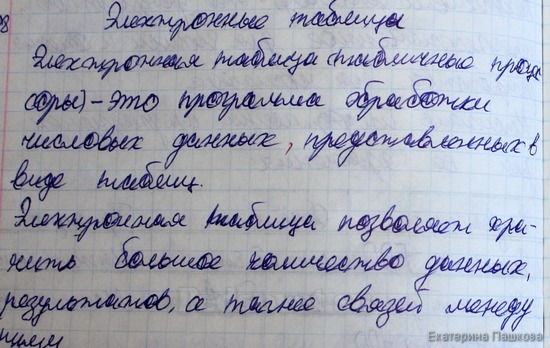 Электронные таблицы
Электронная таблица (табличные процес
соры) - это программа обработки
числовых данных, представленных в
виде таблиц.
Электронная таблица позволяет хра-
нить большое количество данных,
результатов, а также связей между
ними
Екатерина Пашкова